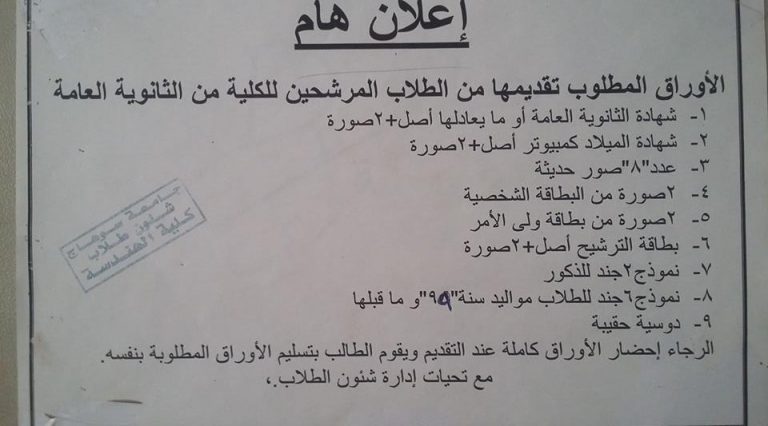 إعلان هام
الأوراق المطلوب تقديمها من الطلاب المرشحين للكلية من الثانوية العامة
١- شهادة الثانوية العامة أو ما يعادلها أصل+٢صورة
٢- شهادة الميلاد كمبيوتر أصل+٢صورة
٣- عدد"٨"صور حديثة
٤- ٢صورة من البطاقة الشخصية
٥- ٢صورة من بطاقة ولى الأمر
٦- بطاقة الترشيح أصل+٢صورة
٧- نموذج٢جند للذكور
٨- نموذج٦جند للطلاب مواليد سنة"٩٩"و ما قبلها
٩- دوسية حقيبة
الرجاء إحضار الأوراق كاملة عند التقديم ويقوم الطالب بتسليم الأوراق المطلوبة بنفسه.
مع تحيات إدارة شئون الطلاب.،
جامعة سوهاج
شئون طلاب
كلية الهندسة